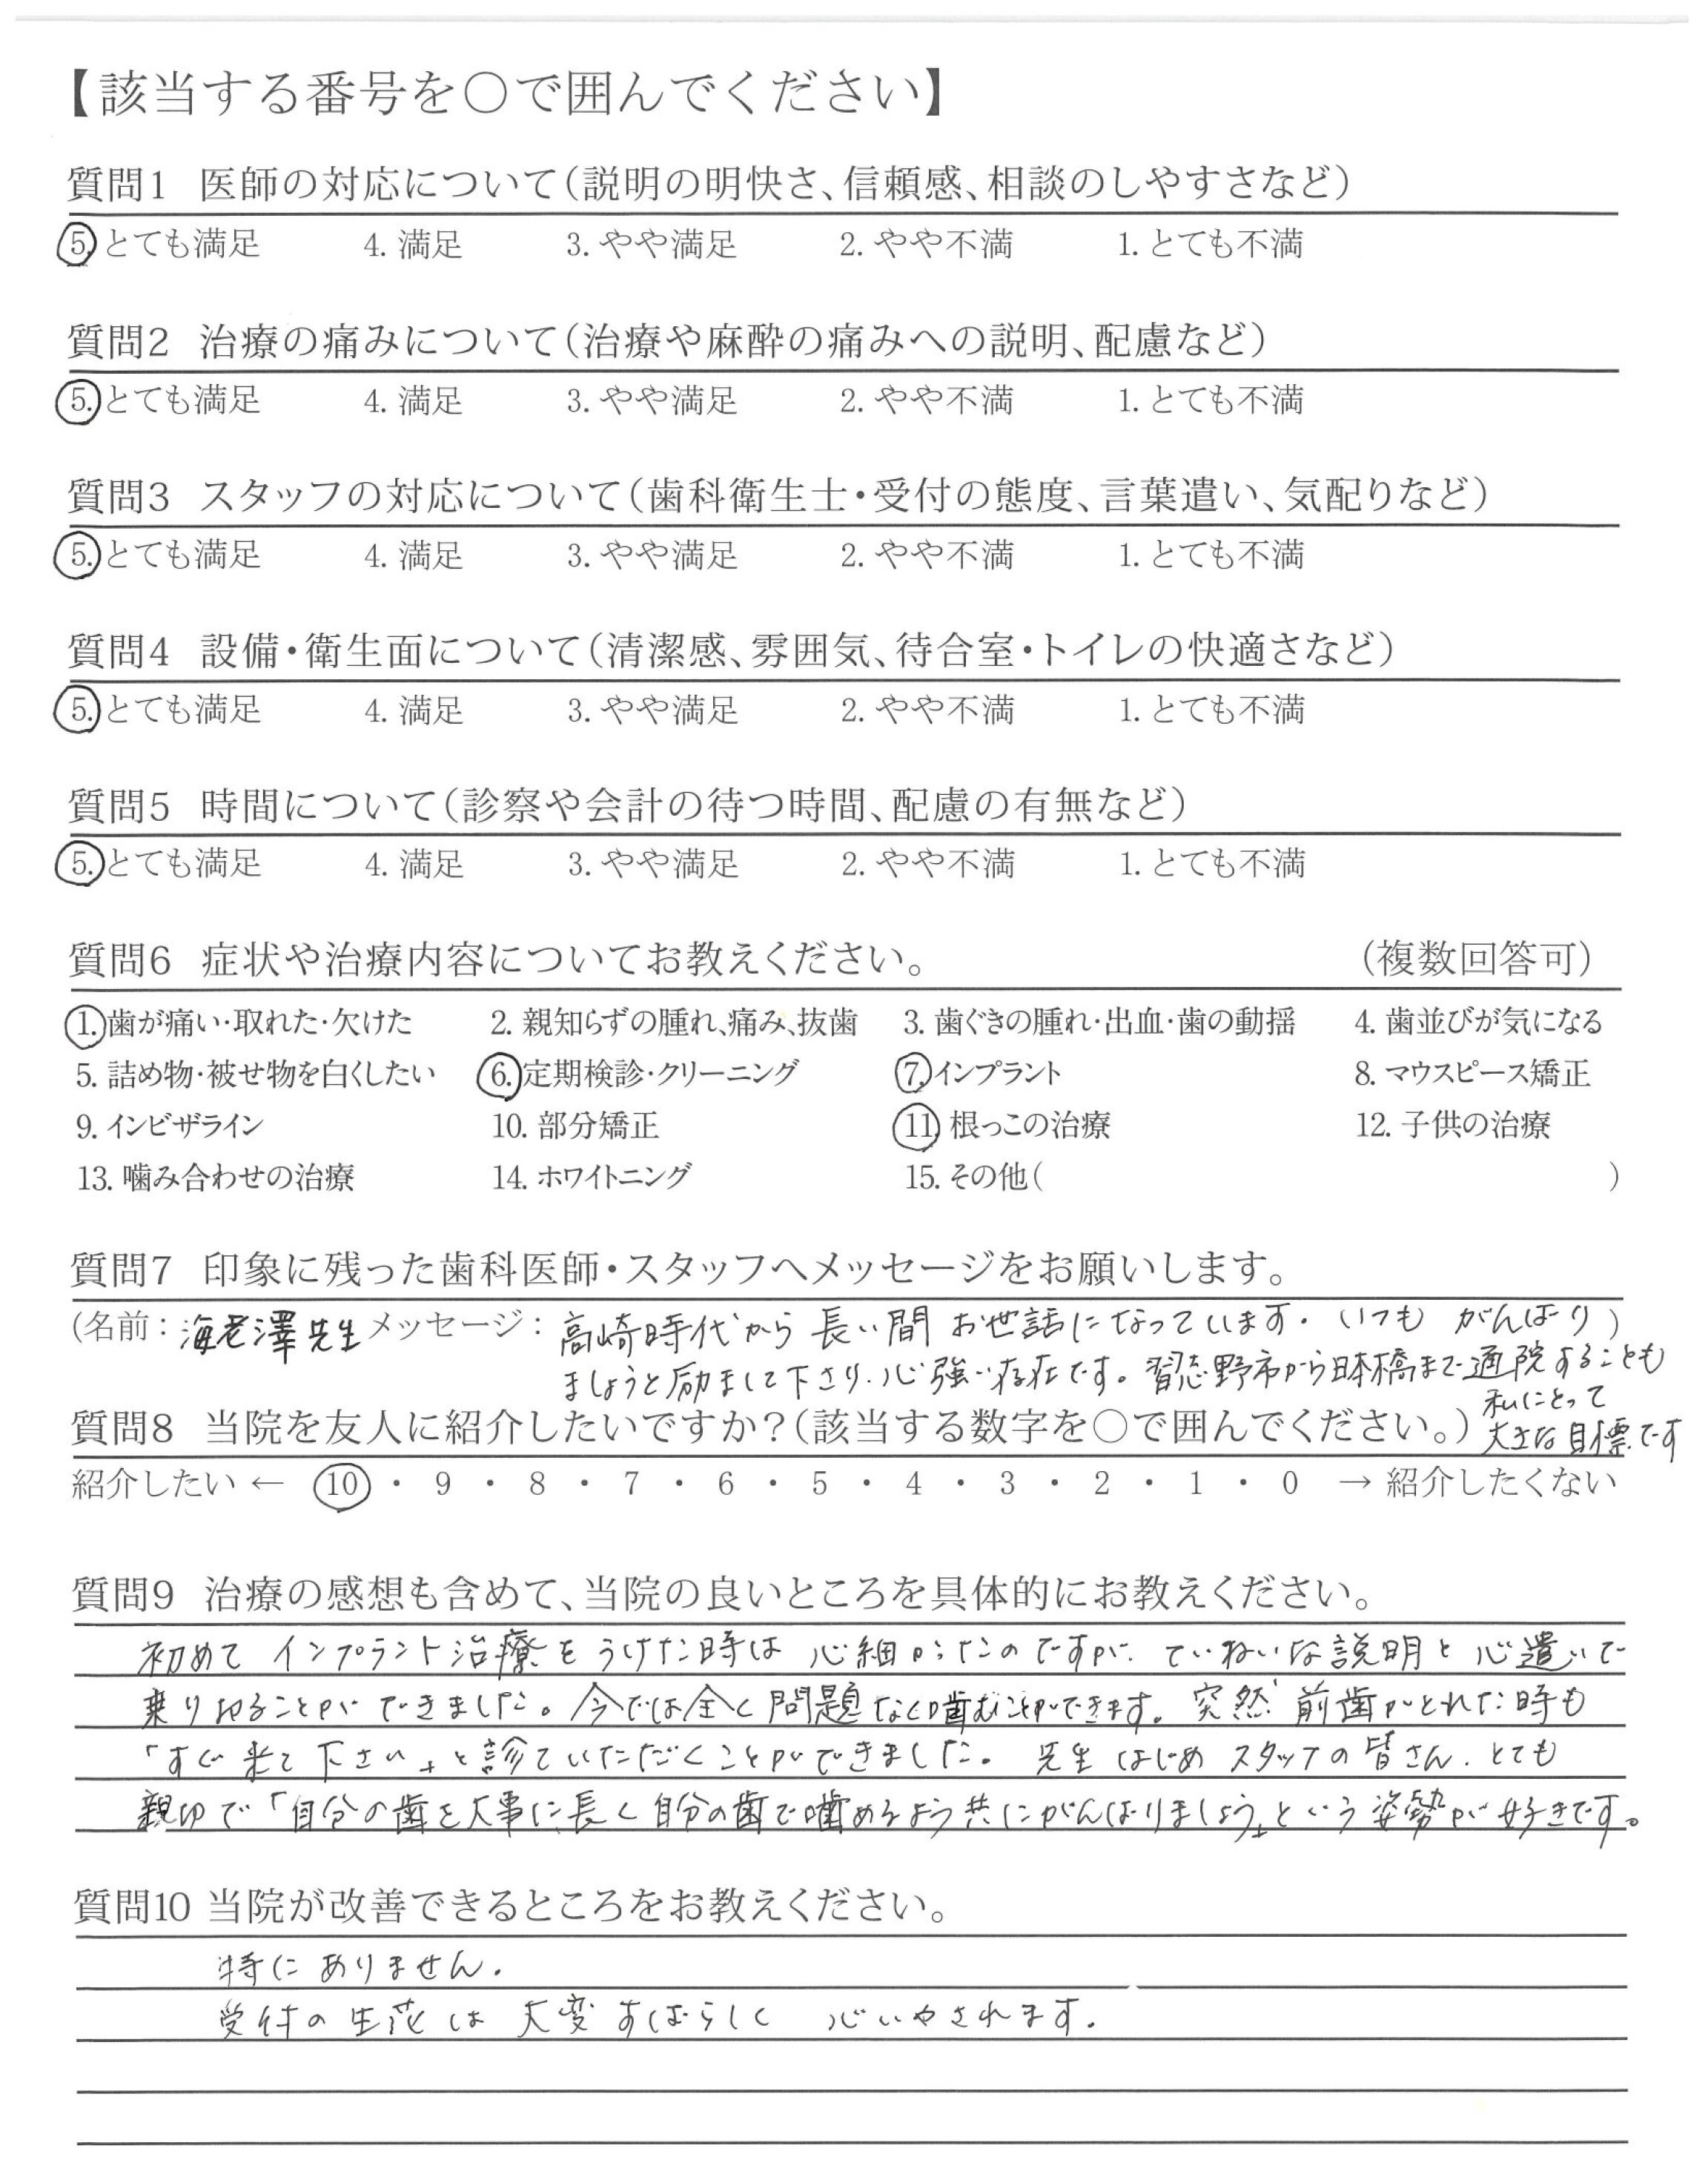 【該当する番号を○で囲んでください】
質問1 医師の対応について(説明の明快さ、信頼感、相談のしやすさなど)
5. とても満足 4. 満足 3. やや満足 2. やや不満 1. とても不満
質問2 治療の痛みについて(治療や麻酔の痛みへの説明、配慮など)
5. とても満足 4. 満足 3. やや満足 2. やや不満 1. とても不満
質問3 スタッフの対応について(歯科衛生士・受付の態度、言葉遣い、気配りなど)
5. とても満足 4. 満足 3. やや満足 2. やや不満 1. とても不満
質問4 設備・衛生面について(清潔感、雰囲気、待合室・トイレの快適さなど)
5. とても満足 4. 満足 3. やや満足 2. やや不満 1. とても不満
質問5 時間について(診察や会計の待つ時間、配慮の有無など)
5. とても満足 4. 満足 3. やや満足 2. やや不満 1. とても不満
質問6 症状や治療内容についてお教えください。 (複数回答可)
1. 歯が痛い・取れた・欠けた 2. 親知らずの腫れ、痛み、抜歯 3. 歯ぐきの腫れ・出血・歯の動揺 4. 歯並びが気になる
5. 詰め物・被せ物を白くしたい 6. 定期検診・クリーニング 7. インプラント 8. マウスピース矯正
9. インビザライン 10. 部分矯正 11. 根っこの治療 12. 子供の治療
13. 噛み合わせの治療 14. ホワイトニング 15. その他( )
質問7 印象に残った歯科医師・スタッフへメッセージをお願いします。
(名前:海老澤先生 メッセージ:高崎時代から長い間お世話になっています。いつも がんばり)
ましょうと励まして下さり、心強い存在です。習志野市から日本橋まで通院することも
私にとって
大きな目標です
質問8 当院を友人に紹介したいですか?(該当する数字を○で囲んでください。)
紹介したい ← 10 ・ 9 ・ 8 ・ 7 ・ 6 ・ 5 ・ 4 ・ 3 ・ 2 ・ 1 ・ 0 → 紹介したくない
質問9 治療の感想も含めて、当院の良いところを具体的にお教えください。
初めて インプラント治療をうけた時は 心細かったのですが、ていねいな説明と心遣いで
乗り切ることができました。今では全く問題なく噛むことができます。突然 前歯がとれた時も
「すぐ来て下さい」と診ていただくことができました。先生はじめスタッフの皆さん、とても
親切で「自分の歯を大事に長く自分の歯で噛めるよう共にがんばりましょう」という姿勢が好きです。
質問10 当院が改善できるところをお教えください。
特にありません。
受付の生花は 大変すばらしく 心いやされます。